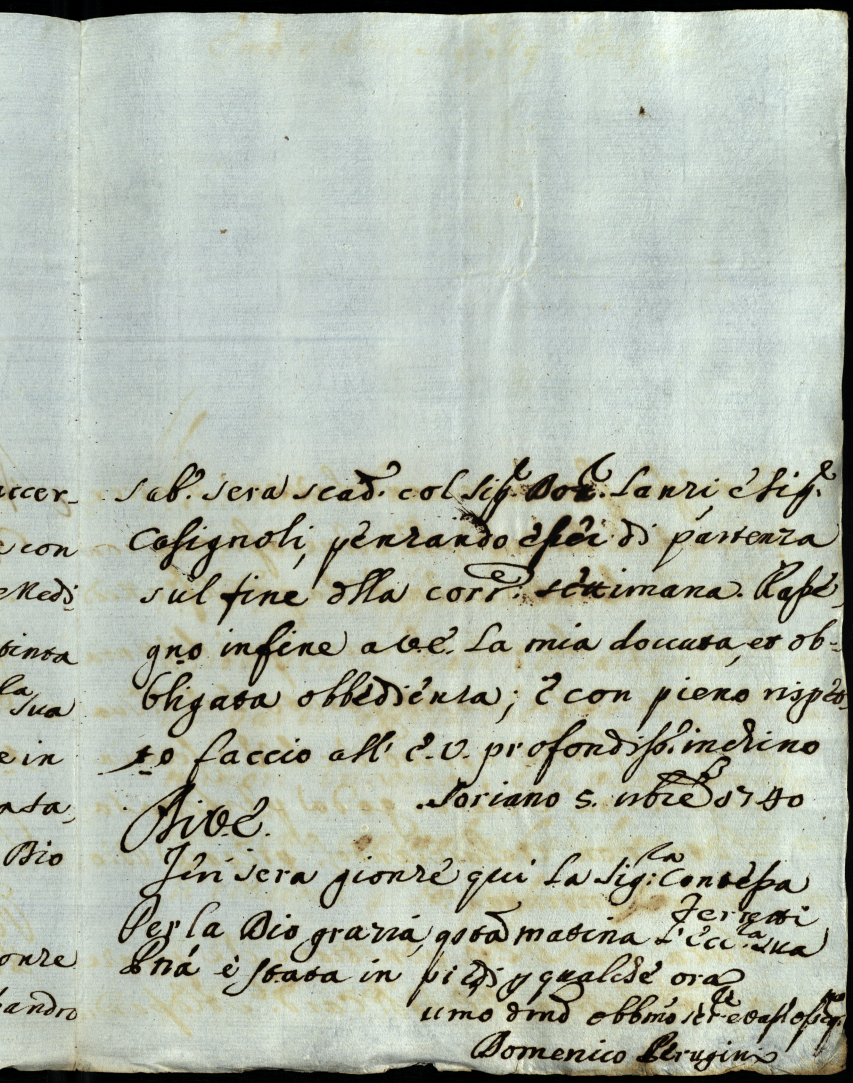 accer-
e con
Medi-
tinta
la sua
e in
ata,
Dio
onze
andro
sab.º sera scad.º col Sigr. Dor. Lanzi e Sigr.
Cosignoli, penzando essi di partenza
sul fine dlla corr.e settimana. Rasse,
gno infine a V.E. La mia dovuta, et ob-
bligata obbedienza; e con pieno rispet-
to faccio all' E.V. profondiss.º inchino
Di V.E. Soriano 5. 1740
Jeri sera gionze qui La Sig:ra Contessa
Ferretti
Per la Dio grazia, qstã matina l'Ecc.za Sua
Pnã è stata in piedi p qualche ora
umo obbmo
Domenico Perugini